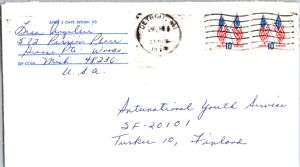 AFTER 5 DAYS RETURN TO
Lisa
572 Perrien Place
Grosse Pte. Woods,
ZIP CODE Mich 48236
U.S.A.
DETROIT, MI
10c 10c
International Youth Service
SF-20101
Turku 10, Finland